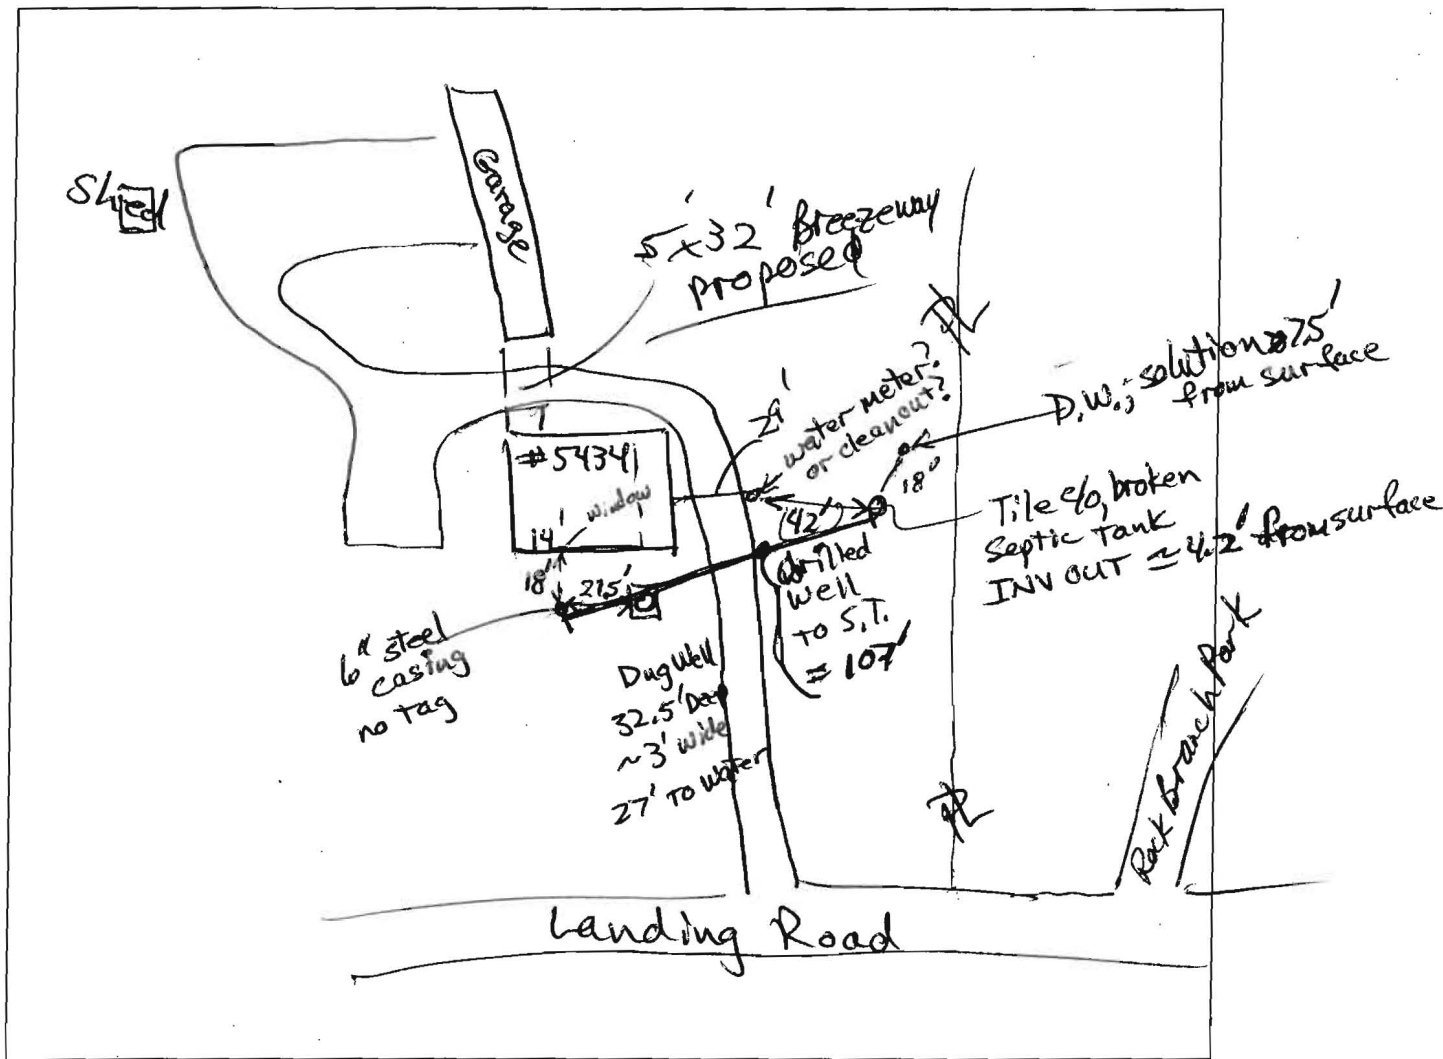 Shed
Garage
5'x32' Breezeway
proposed
PL
D.W.; solution 7.5'
from surface
29'
water meter?
or cleanout?
18"
#5434
window
14'
18'
21.5'
(42')
Tile c/o, broken
Septic Tank
INV OUT ≈ 4.2' from surface
drilled
well
to S.T.
= 107'
6" steel
casing
no tag
Dug Well
32.5' Deep
~3' wide
27' to water
PL
Rock Branch Park
Landing Road